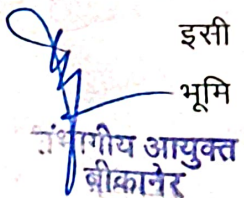 इसी
भूमि
संभागीय आयुक्त
बीकानेर